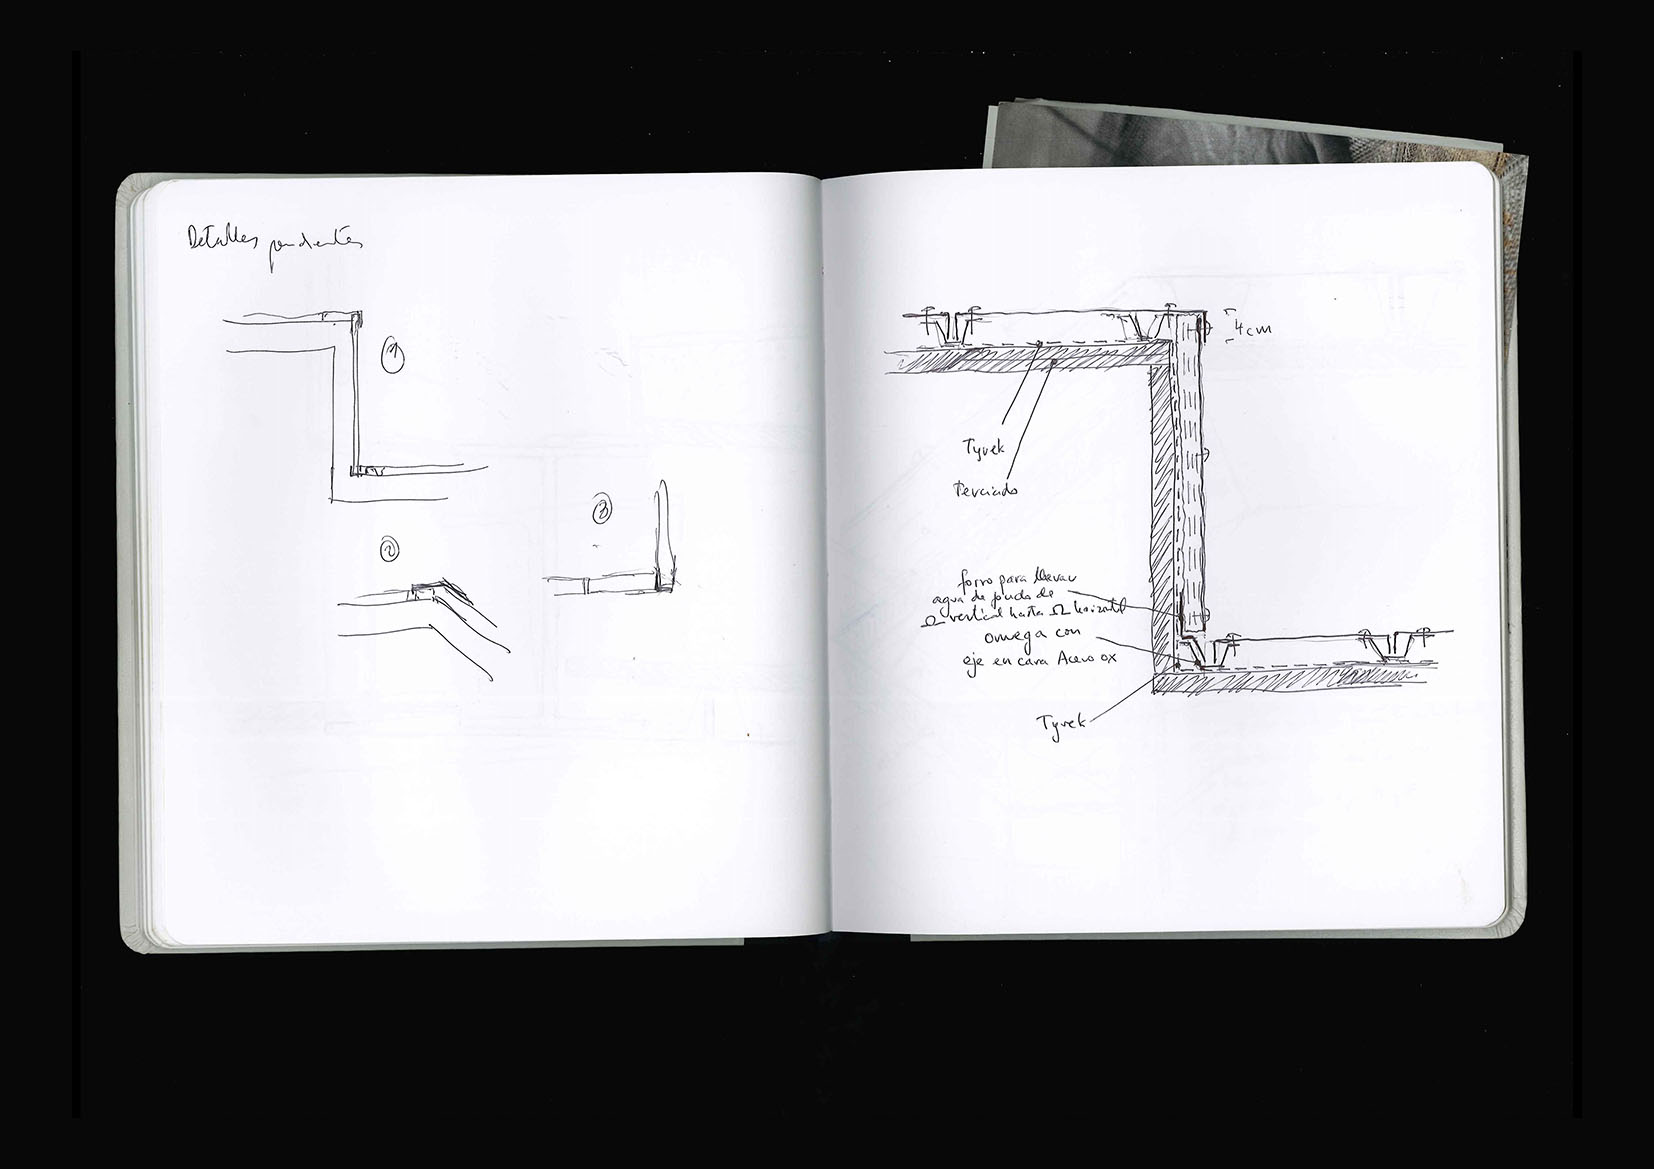 Detalles pendientes
1
2
3
4 cm
Tyvek
Terciado
forro para llevar
agua de
Ω vertical hasta Ω horizontal
omega con
eje en cara Acero ox
Tyvek